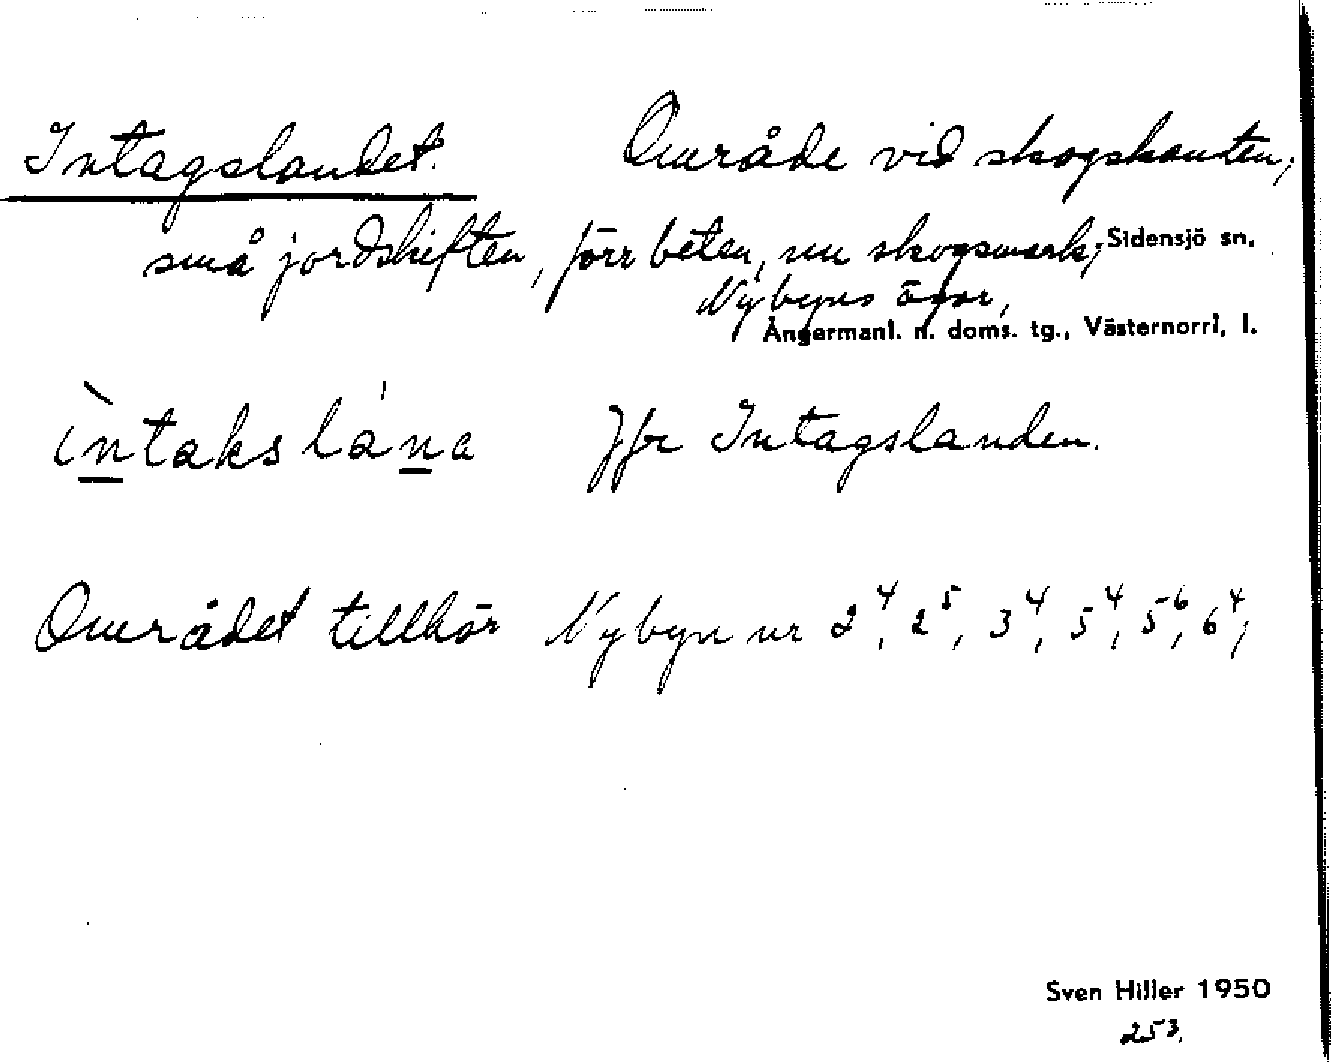 Intagslandet. Område vid skogskanten;
små jordskiften, förr beten, nu skogsmark; Sidensjö sn.
Nybyns ägor,
Ångermanl. n. doms. tg., Västernorrl. l.
ìntakslána Jfr Intagslanden.
Området tillhör Nybyn nr 2⁴, 2⁵, 3⁴, 5⁴, 5⁶, 6⁴,
Sven Hiller 1950
253.